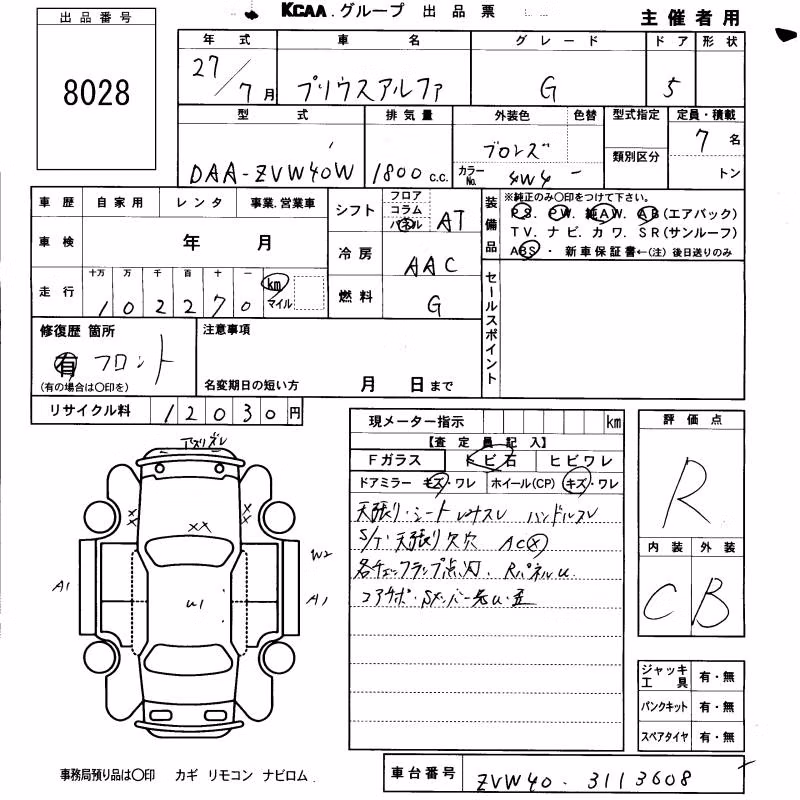 KCAA.グループ 出品票
主催者用
出品番号
8028
年式 車名 グレード ドア 形状
27/7月 プリウスアルファ G 5
型式 排気量 外装色 色替 型式指定 定員・積載
類別区分
DAA-ZVW40W 1800c.c. ブロンズ 7名
カラーNo. 4W4 - トン
車歴 自家用 レンタ 事業.営業車
シフト フロア コラム パネル AT
装備品 ※純正のみ〇印をつけて下さい。
PS. PW. 純AW. AB(エアバック)
TV. ナビ. カワ. SR(サンルーフ)
ABS・新車保証書←(注)後日送りのみ
車検 年 月
冷房 AAC
走行 十万 万 千 百 十 一 km マイル
102270
燃料 G
セールスポイント
修復歴 箇所
有 フロント
(有の場合は〇印を)
注意事項
名変期日の短い方 月 日まで
リサイクル料 12030円
現メーター指示 km
【査定員記入】
Fガラス トビ石 ヒビワレ
ドアミラー キズ・ワレ ホイール(CP) キズ・ワレ
天張り・シート ハンドルスレ
S/T・天張り欠穴 AC×
各チェックランプ点灯. RパネルU.
コアサポ・Sメンバー先U・歪
評価点
R
内装 外装
C B
XX
XX
XX
W2
A1
U1
A1
ジャッキ工具 有・無
パンクキット 有・無
スペアタイヤ 有・無
事務局預り品は〇印 カギ リモコン ナビロム.
車台番号 ZVW40-3113608